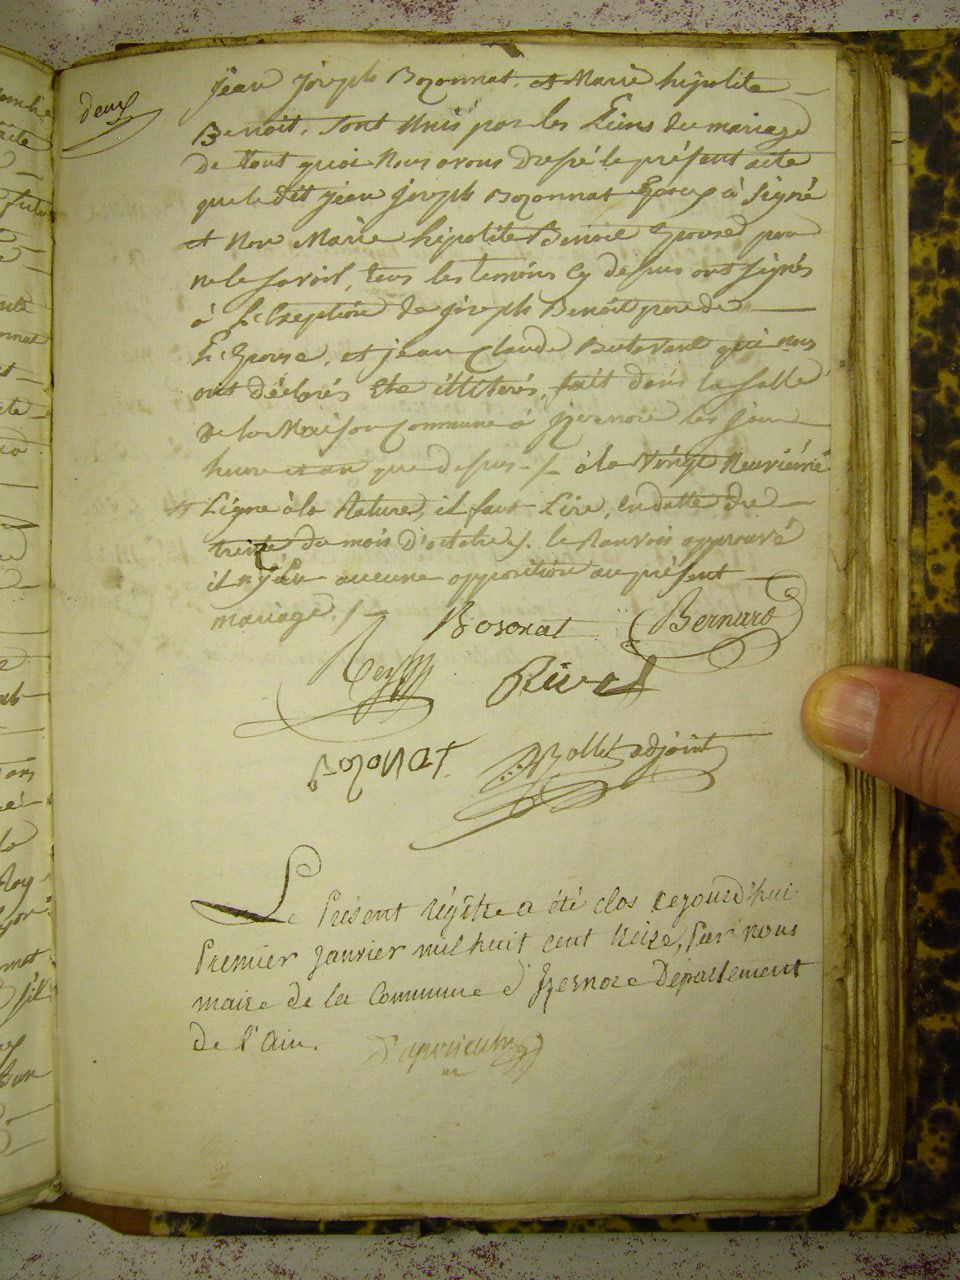 deux
jean joseph Bozonnat, et Marie hipolite
Benoit, sont Unis par les Liens du mariage
de tout quoi Nous avons Dressé le présent acte
que le dit jean joseph Bozonnat Epoux à Signé
et Non Marie hipolite Benoit Epouse pour
ne le savoir, tous les temoins cy dessus ont signés
à L'Exeption de joseph Benoit pere de
L'Epouse, et jean Claude Butavant qui nous
ont déclarés Etre illiterés, fait dans la Salle
de la Maison Commune à Izernore les jour
heure et an que dessus ./. à la Vingt Neuvième
Ligne à la Rature, il faut Lire, en datte du
trente du mois D'octobre ./. le Ranvois approuvé
il n'y a Eu aucune opposition au présent
mariage ./.
Bosonat Bernard
Reyd
Bozonat Bollet adjoint
Le Présent régitre a été clos cejourd'hui
Premier Janvier mil huit cent treize, Par nous
maire de la Commune d'Izernore Département
de l'Ain.